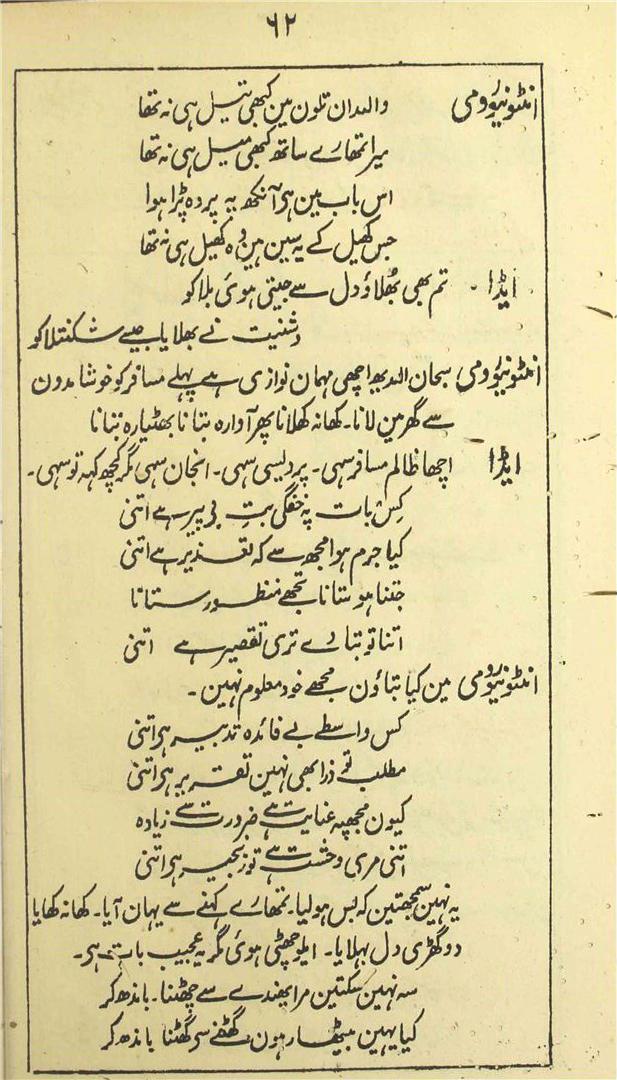 ۶۲
انٹونیو رومی والدان تلون مین کبھی تیل ہی نہ تھا
میرا تمھارے ساتھ کبھی میل ہی نہ تھا
اس باب مین ہر آنکھ پہ پردہ پڑا ہوا
جس کھیل کے یہ سین ہین وہ کھیل ہی نہ تھا
ایڈا - تم بھی بھلاؤ دل سے جیتی ہوئی بلا کو
دشنیت نے بھلایا جیسے شکنتلا کو
انٹونیو رومی سبحان اللہ یہ اچھی مہمان نوازی ہے پہلے مسافر کو خوشامدون
سے گھر مین لانا - کھانہ کھلانا پھر آوارہ بتانا بھٹیارہ بنانا
ایڈا اچھا ظالم مسافر سہی - پردیسی سہی - انجان سہی مگر کچھ کہہ تو سہی -
کس بات پہ خفگی بتِ بی پیر ہے اتنی
کیا جرم ہوا مجھ سے کہ تعذیر ہے اتنی
جتنا ہو ستانا تجھے منظور ستانا
اتنا تو بتا دے تری تقصیر ہے اتنی
انٹونیو رومی مین کیا بتاؤن مجھے خود معلوم نہین -
کس واسطے بے فائدہ تدبیر ہر اتنی
مطلب تو ذرا بھی نہین تقریر ہر اتنی
کیون مجھپہ عنایت ہے ضرورت سے زیادہ
اتنی مری وحشت ہے تو زنجیر ہر اتنی
یہ نہین سمجھتین کہ بس ہولیا - تمھارے کہنے سے یہان آیا - کھانہ کھایا
دو گھڑی دل بہلایا - ایلو چھٹی ہوئی مگر یہ عجیب بات ہر -
سہ نہین سکتین مرا پھندے سے چھٹنا - باندھ کر
کیا یہین بیٹھا رہون گھٹنے سر گھٹنا باندھ کر